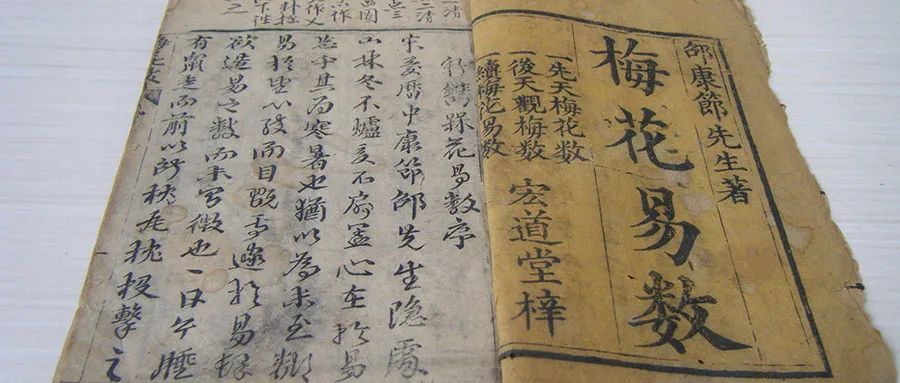 邵康節先生著
梅花易数
一先天梅花数
一後天觀梅数
一續梅花易数
宏道堂梓
花易数序
宋慶曆中康節邵先生隐處
山林冬不爐夏不扇蓋心在於易
忘乎其為寒暑也猶以為未至糊
易於壁心致而目翫焉邃於易理
欲造易之数而未有徵也一日午睡
有鼠走而前以所枕瓦枕投擊之